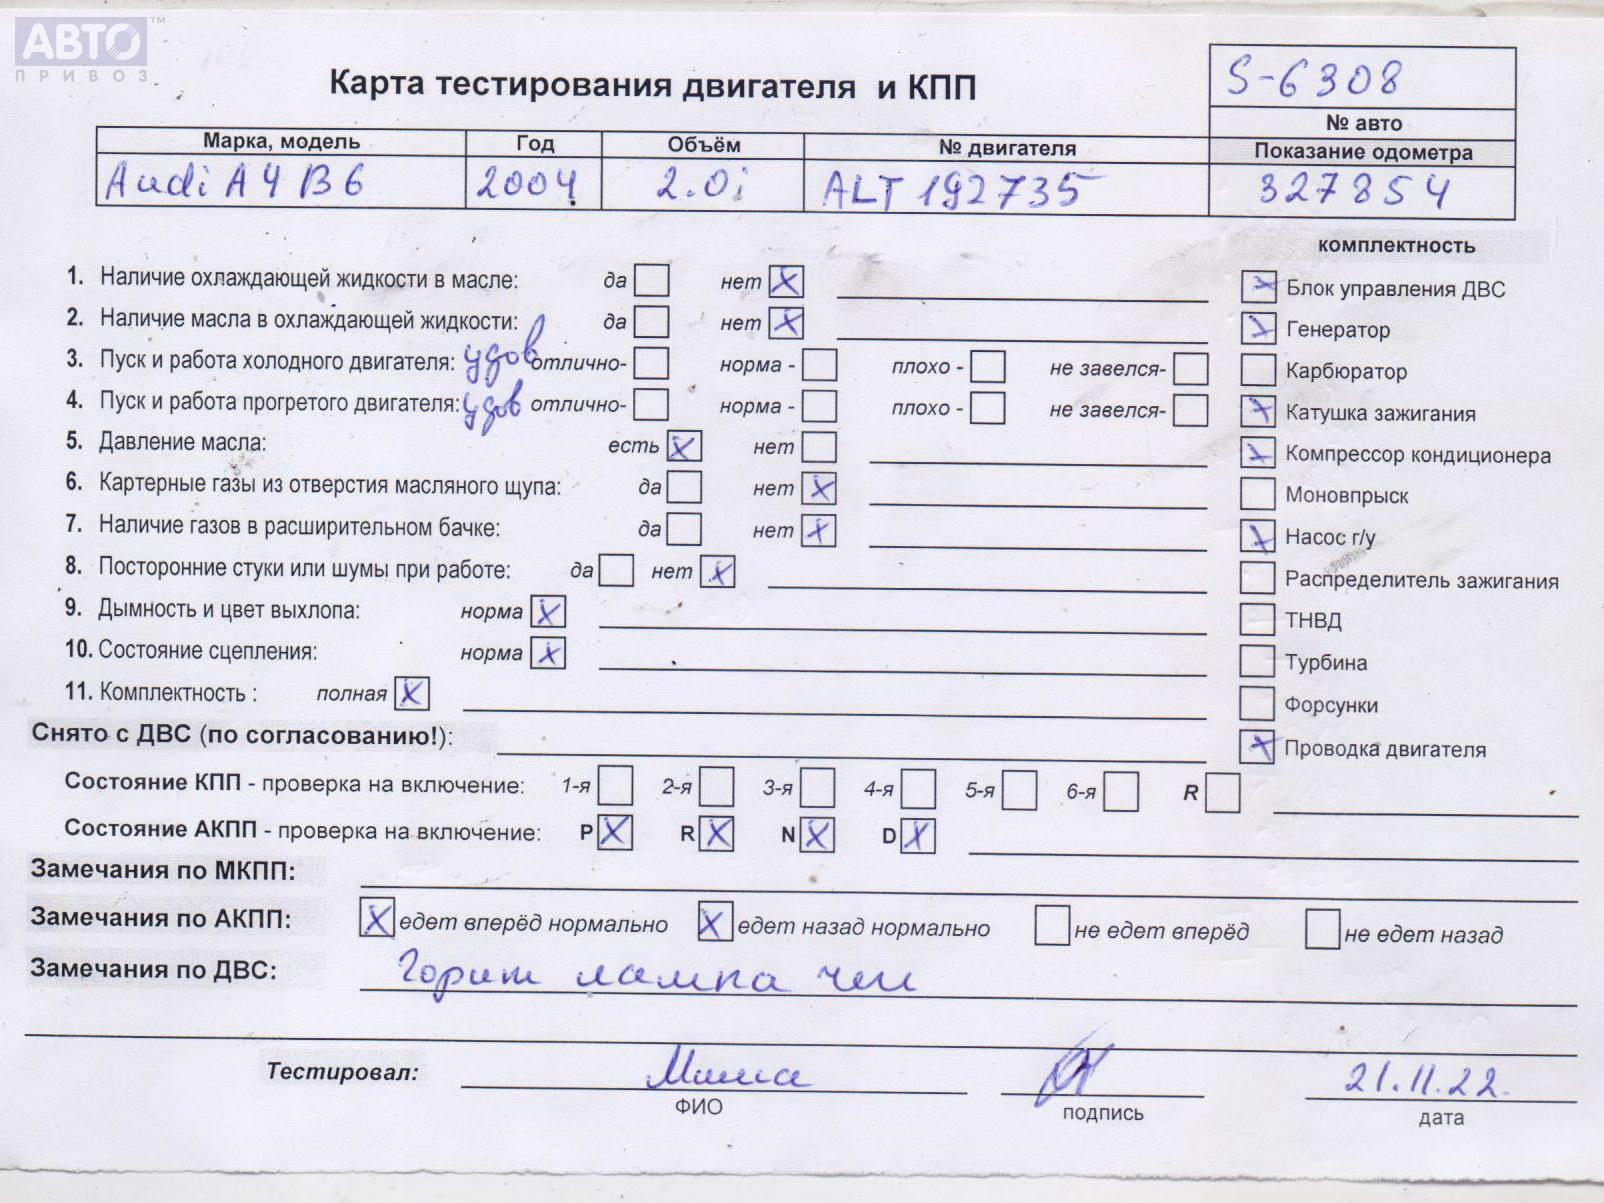 АВТО™
ПРИВОЗ
Карта тестирования двигателя и КПП
S-6308
№ авто
Марка, модель Год Объём № двигателя Показание одометра
Audi A4 B6 2004 2.0i ALT 192735 327854
комплектность
1. Наличие охлаждающей жидкости в масле: да нет X
Блок управления ДВС X
2. Наличие масла в охлаждающей жидкости: да нет X
Генератор X
3. Пуск и работа холодного двигателя: удов отлично- норма - плохо - не завелся-
Карбюратор
4. Пуск и работа прогретого двигателя: удов отлично- норма - плохо - не завелся-
Катушка зажигания X
5. Давление масла: есть X нет
Компрессор кондиционера X
6. Картерные газы из отверстия масляного щупа: да нет X
Моновпрыск
7. Наличие газов в расширительном бачке: да нет X
Насос г/у X
8. Посторонние стуки или шумы при работе: да нет X
Распределитель зажигания
9. Дымность и цвет выхлопа: норма X
ТНВД
10. Состояние сцепления: норма X
Турбина
11. Комплектность : полная X
Форсунки
Снято с ДВС (по согласованию!):
Проводка двигателя X
Состояние КПП - проверка на включение: 1-я 2-я 3-я 4-я 5-я 6-я R
Состояние АКПП - проверка на включение: P X R X N X D X
Замечания по МКПП:
Замечания по АКПП: X едет вперёд нормально X едет назад нормально не едет вперёд не едет назад
Замечания по ДВС: Горит лампа чек
Тестировал: Миша 21.11.22.
ФИО подпись дата